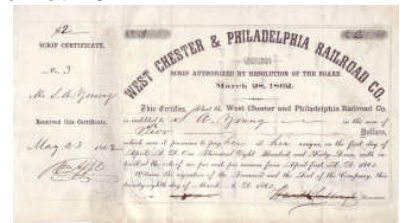 $2
SCRIP CERTIFICATE.
No 3
S. A. Young
Received this Certificate,
May 23 1862
WEST CHESTER & PHILADELPHIA RAILROAD CO.
SCRIP AUTHORIZED BY RESOLUTION OF THE BOARD
March 28, 1862.
This Certifies, That the West Chester and Philadelphia Railroad Co.
is indebted to S. A. Young in the sum of
Two Dollars,
which sum it promises to pay her or her assigns, on the first day of
April A. D. One Thousand Eight Hundred and Sixty
at the rate of six per cent. per annum from April first, A. D. 1862.
Witness the signature of the President and the Seal of the Company, this
twenty-eighth day of March A. D. 1862.